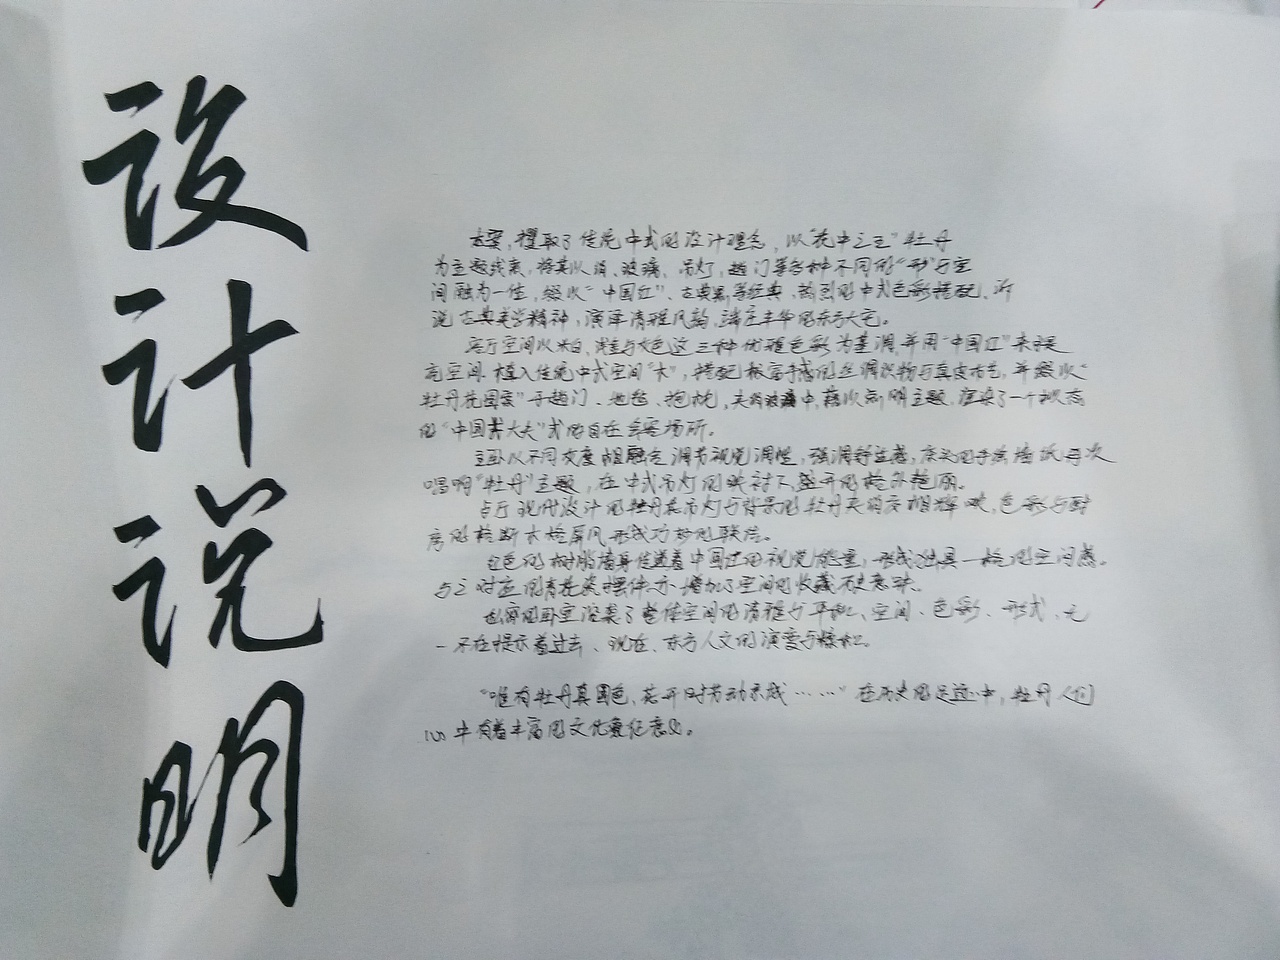 设计说明
本案,撷取了传统中式的设计理念,以"花中之王"牡丹
为主题线索,将其以绢、玻璃、吊灯,趟门等各种不同的"形"与空
间融为一体,缀以"中国红"、古典黑等经典,热烈的中式色彩搭配、诉
说古典美学精神,演泽清雅风韵,端庄丰华的东方大宅。
客厅空间以米白,浅与灰色这三种优雅色彩为基调,并用"中国红"来提
亮空间.植入传统中式空间"木",搭配极富手感的丝绸织物与真皮,并缀以"
牡丹花图案"于趟门、地毯、抱枕,夹绢玻璃中,藉以点明主题,渲染了一个
的"中国士大夫"式的自在享受场所。
主卧以不同灰度相融合调节视觉调性,强调舒适感,床头的手绘墙纸再次
唱响"牡丹"主题,在中式吊灯的映衬下,盛开的格外艳丽。
与厅现代设计的牡丹花吊灯与背景的牡丹夹绢交相辉映,色彩与厨
房的隔断木格屏风形成巧妙的联结。
红色的树脂墙身传递着中国红的视觉能量,形成独具一格的空间感。
与之对应的青花瓷摆件亦增加了空间的收藏历史意味。
私密的卧室沿袭了整体空间的清雅与平和、空间、色彩、形式、无
一不在提示着过去、现在、东方人文的演变与
"唯有牡丹真国色,花开时节动京城……"在历史的足迹中,牡丹人们
心中有着丰富的文化意义。